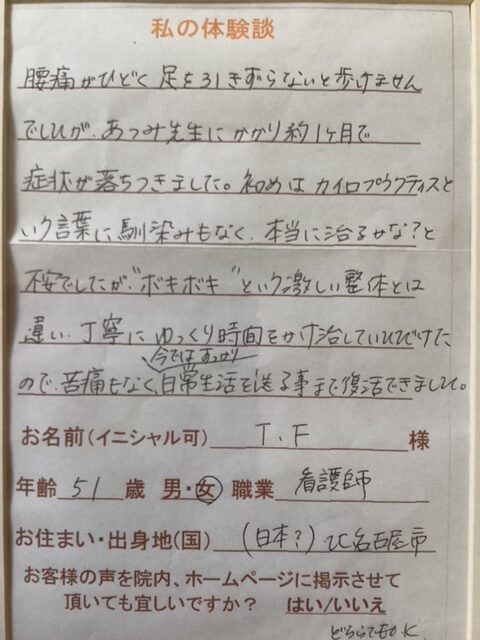 私の体験談
腰痛がひどく足を引きずらないと歩けません
でしたが、あつみ先生にかかり約1ヶ月で
症状が落ちつきました。初めはカイロプラクティスと
いう言葉に馴染みもなく、本当に治るかな?と
不安でしたが、"ボキボキ"という激しい整体とは
違い、丁寧にゆっくり時間をかけ治していただけた
今ではすっかり
ので、苦痛もなく、日常生活を送る事まで復活できました。
お名前(イニシャル可) T.F 様
年齢 51 歳 男・女 職業 看護師
お住まい・出身地(国) (日本?) 名古屋市
お客様の声を院内、ホームページに掲示させて
頂いても宜しいですか? はい/いいえ
どちらでもOK